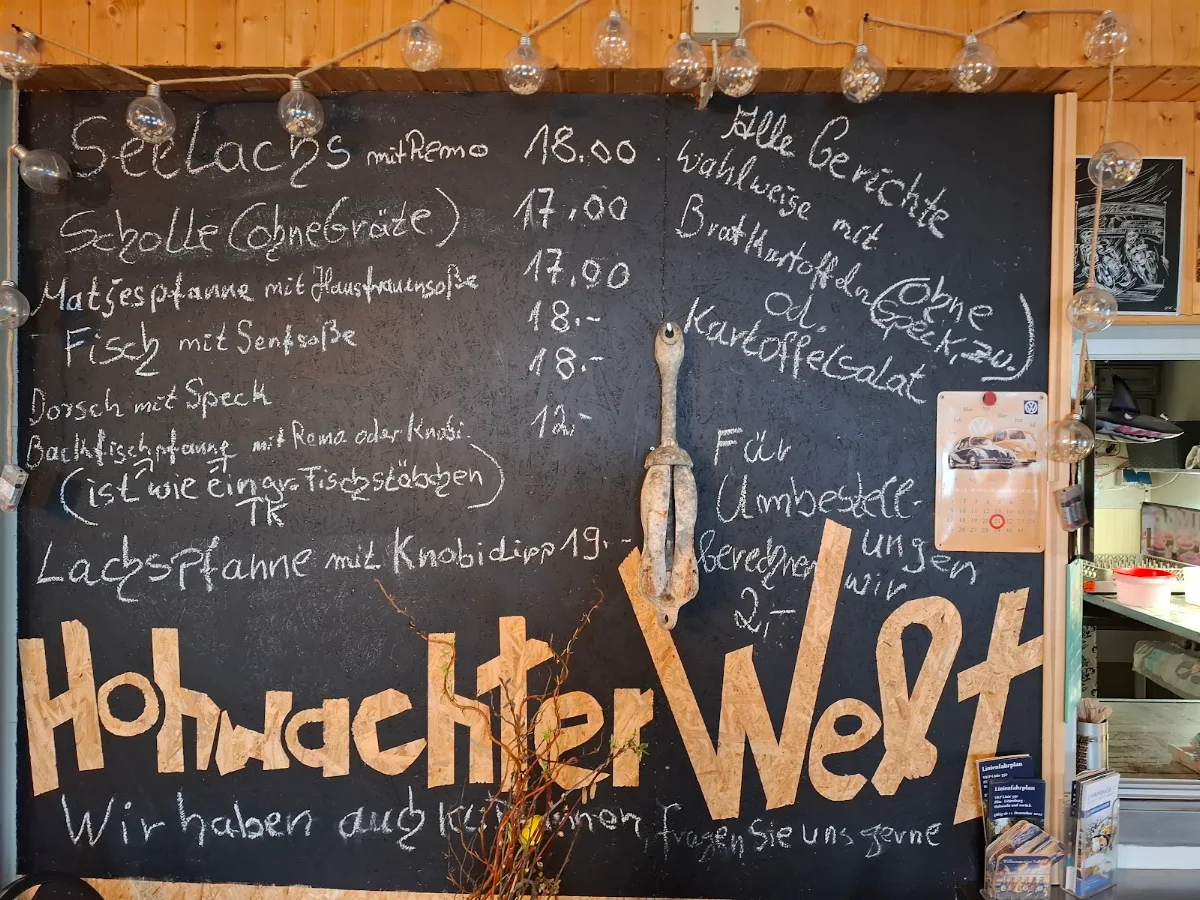 Seelachs mit Remo 18.00
Scholle (ohne Gräte) 17.00
Matjespfanne mit Hausfrauensoße 17.00
Fisch mit Senfsoße 18.-
Dorsch mit Speck 18.-
Backfischpfanne mit Remo oder Knobi 12.-
(ist wie ein gr. Fischstäbchen)
TK
Lachspfanne mit Knobidipp 19.-
Alle Gerichte
wahlweise mit
Bratkartoffeln (ohne
Speck, zw.)
od.
Kartoffelsalat
Für
Umbestell-
ungen
berechnen wir
2,-
Hohwachter Welt
Wir haben auch fragen Sie uns gerne
Linienfahrplan
Linienfahrplan